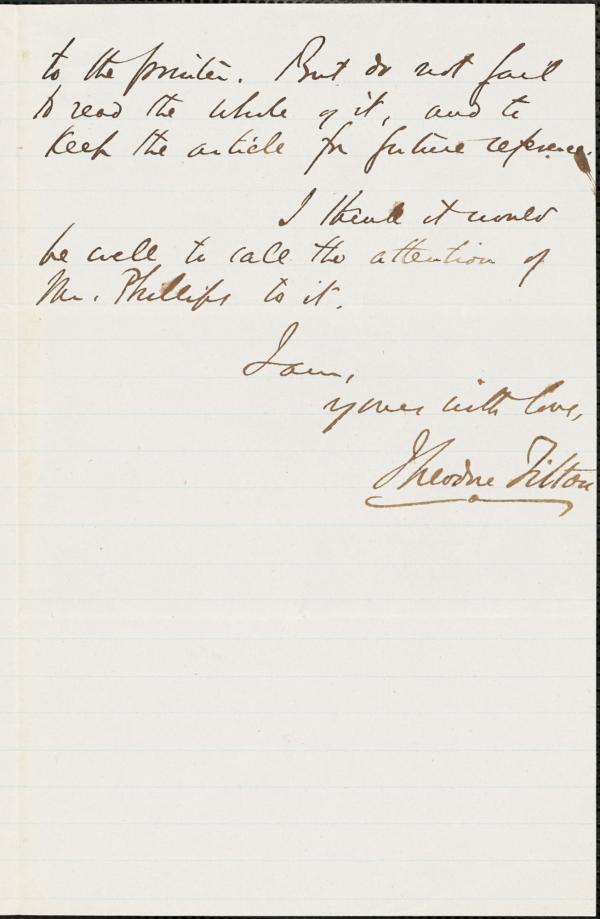 to the printer. But do not fail
to read the whole of it, and to
keep the article for future reference.
I think it would
be well to call the attention of
Mr. Phillips to it.
I am,
yours with love,
Theodore Tilton